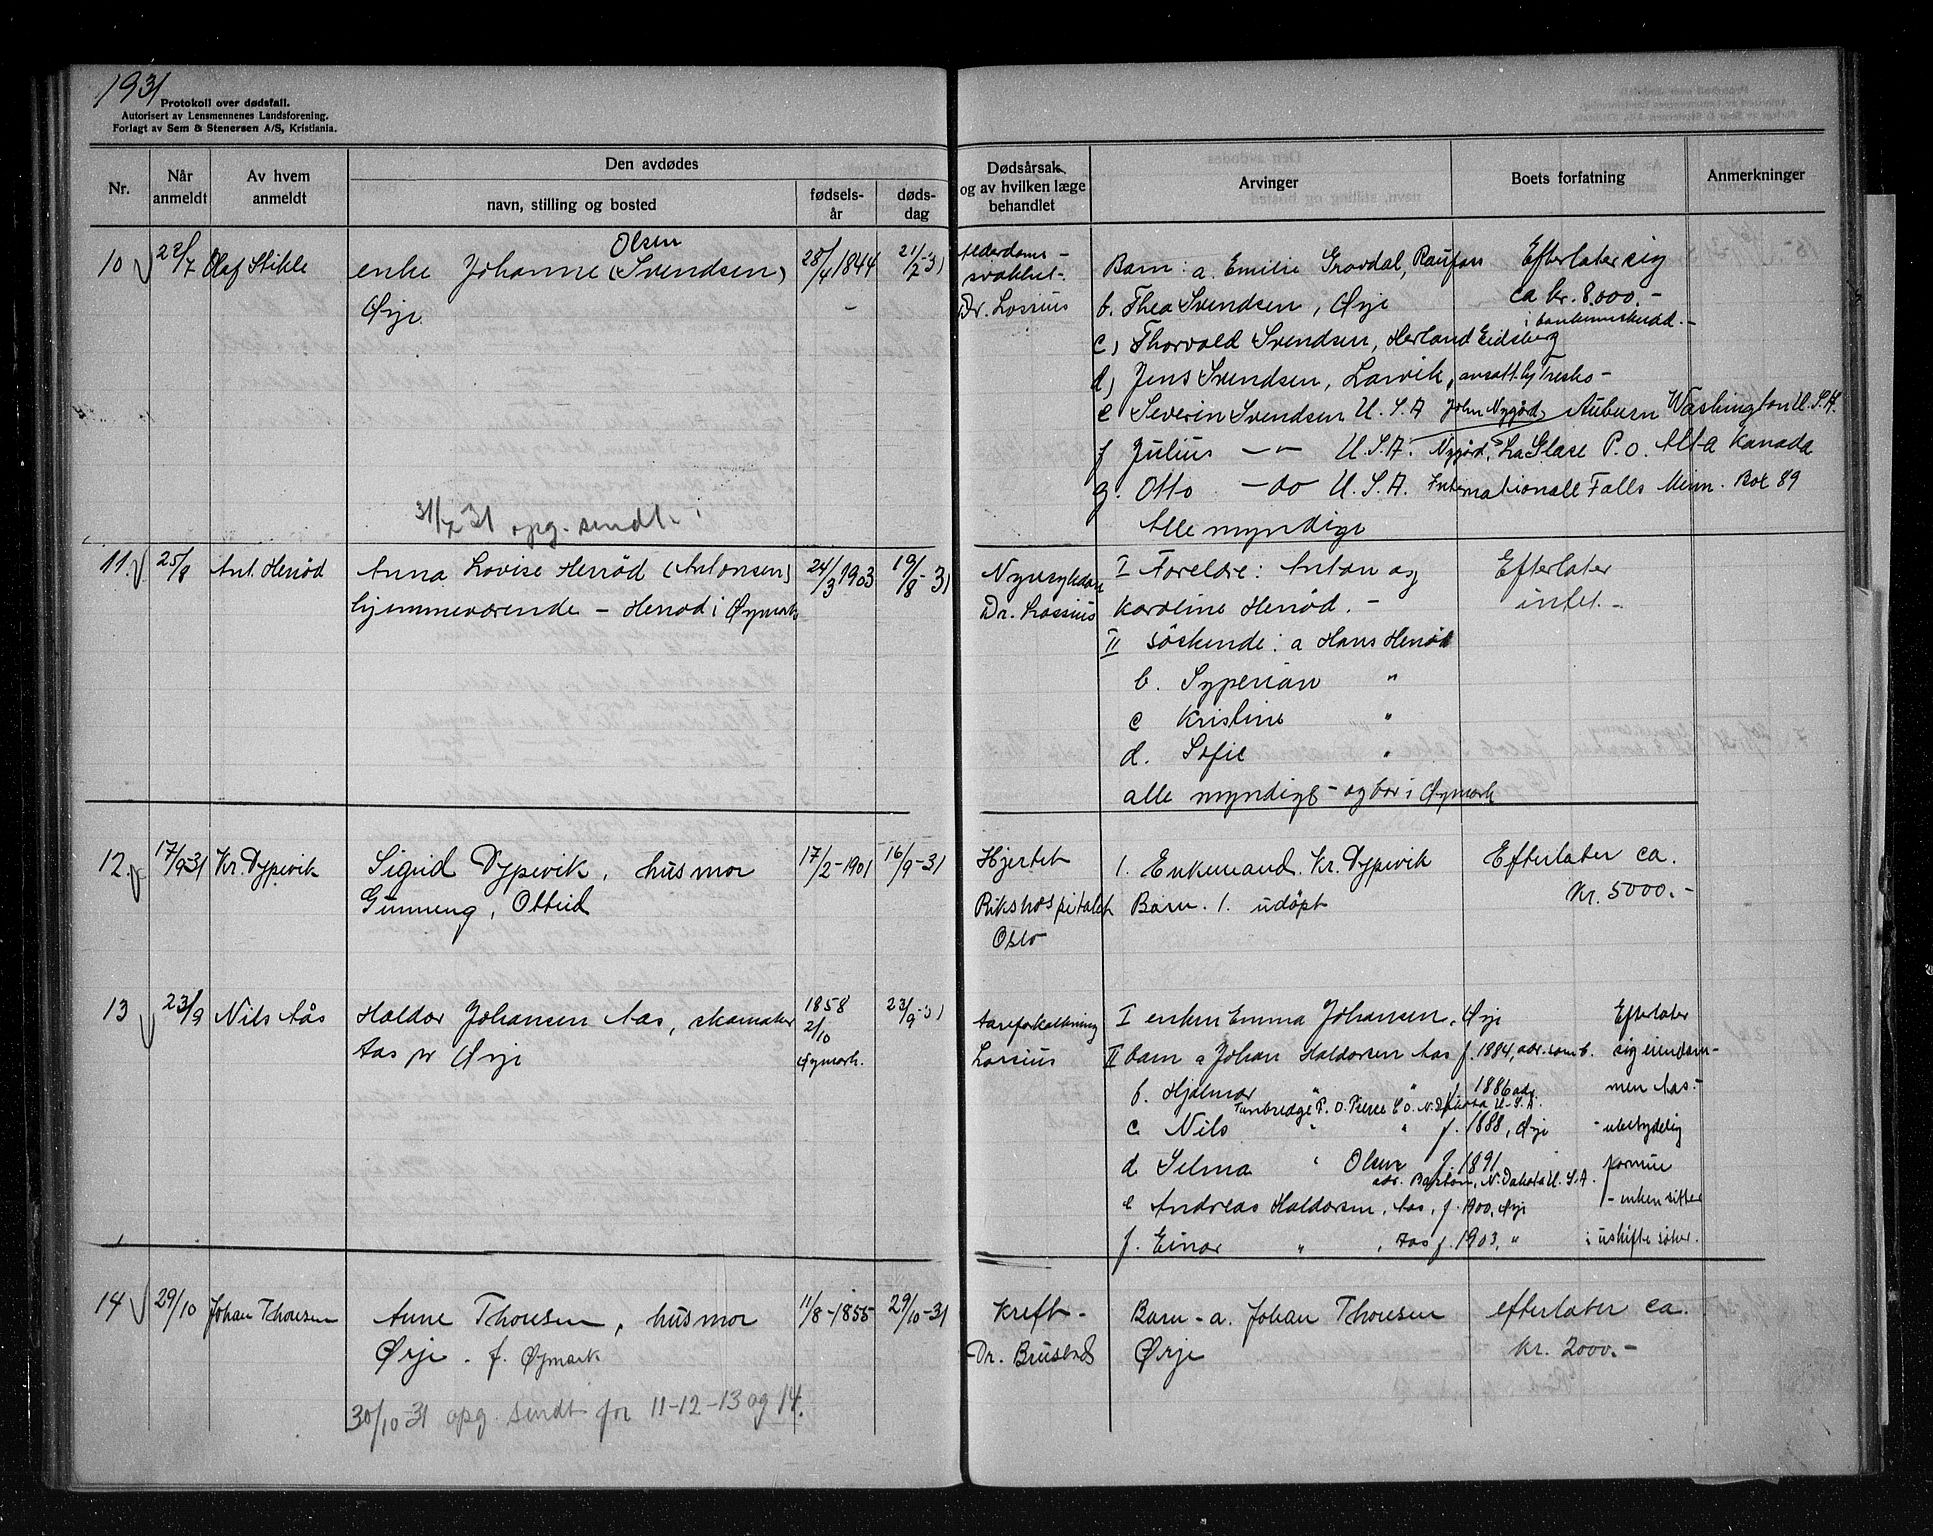 1931
Protokoll over dødsfall.
Autorisert av Lensmennenes Landsforening.
Forlagt av Sem & Stenersen A/S, Kristiania.
Nr.
Når anmeldt
Av hvem anmeldt
Den avdødes
navn, stilling og bosted
fødsels-år
døds-dag
Dødsårsak og av hvilken læge behandlet
Arvinger
Boets forfatning
Anmerkninger
10 22/7 Olaf Stikle
Olsen
enke Johanne (Svendsen)
Ørje.
28/4 1844
21/7 31
Alderdoms-
svakhet-
Dr. Lossius
Barn: a. Emilie Grovdal, Raufoss
b. Thea Svendsen, Ørje
c) Thorvald Svendsen, Herland Eidsberg
d) Jens Svendsen, Larvik, ansatt by Tresko-
e Severin Svendsen U.S.A John Nygård, Auburn Washington U.S.A.
f Julius -"- U.S.A. Nygård, La Glace P.o. Alta Kanada
g. Otto -do U.S.A. Internationall Falls Minn. Box 89
Alle myndige
Efterlater sig
ca kr. 8.000.-
i bankinnskudd.-
31/7 31 opg. sendt.
11. 25/8 Ant. Henød
Anna Lovise Henød (Antonsen)
hjemmeværende - Henød i Øymark
24/3 1903
19/8-31
Nyresykdom
Dr. Lossius
I Foreldre: Anton og
Karoline Henød. -
II søskende: a Hans Henød
b. Syperian "
c Kristine "
d. Sofie "
alle myndige - og bor i Øymark
Efterlater
intet.-
12. 17/9-31 Kr. Dypevik
Sigrid Dypevik, husmor
Gunneng, Otteid
17/2-1901
16/9-31
Hjertet
Rikshospitalet
Oslo
1. Enkemand. Kr. Dypevik
Barn. 1. udøpt
Efterlater ca.
Kr. 5000.-
13 23/9 Nils Aås
Haldor Johansen Aas, skomaker
Aas pr Ørje
1858
2/10
Øymark.
23/9-31
Aareforkalkning
Lossius
I enken Emma Johansen, Ørje
II barn a Johan Haldorsen Aas f. 1884, adr. som b.
b. Hjalmar " " f 1886 adr
Tunbredge P.O. Pierce Co. N. Dakota U.S.A.
c Nils " " f. 1888, Ørje
d Selma " Olsen f. 1891
adr. Barton, N. Dakota U.S.A.
e Andreas Haldorsen, Aas, f. 1900, Ørje
f. Einar " , Aas f. 1903, "
Efterlater
sig eiendom-
men Aas.-
- ubetydelig
formue
- enken sitter
i uskifte søker.
14 29/10 Johan Thoresen
Anne Thoresen, husmor
Ørje. f. Øymark
11/8-1855
29/10-31
Kreft-
Dr. Brusted
Barn - a. Johan Thoresen
Ørje
efterlater ca.
kr. 2000.-
30/10 31 opg. sendt for 11-12-13 og 14.